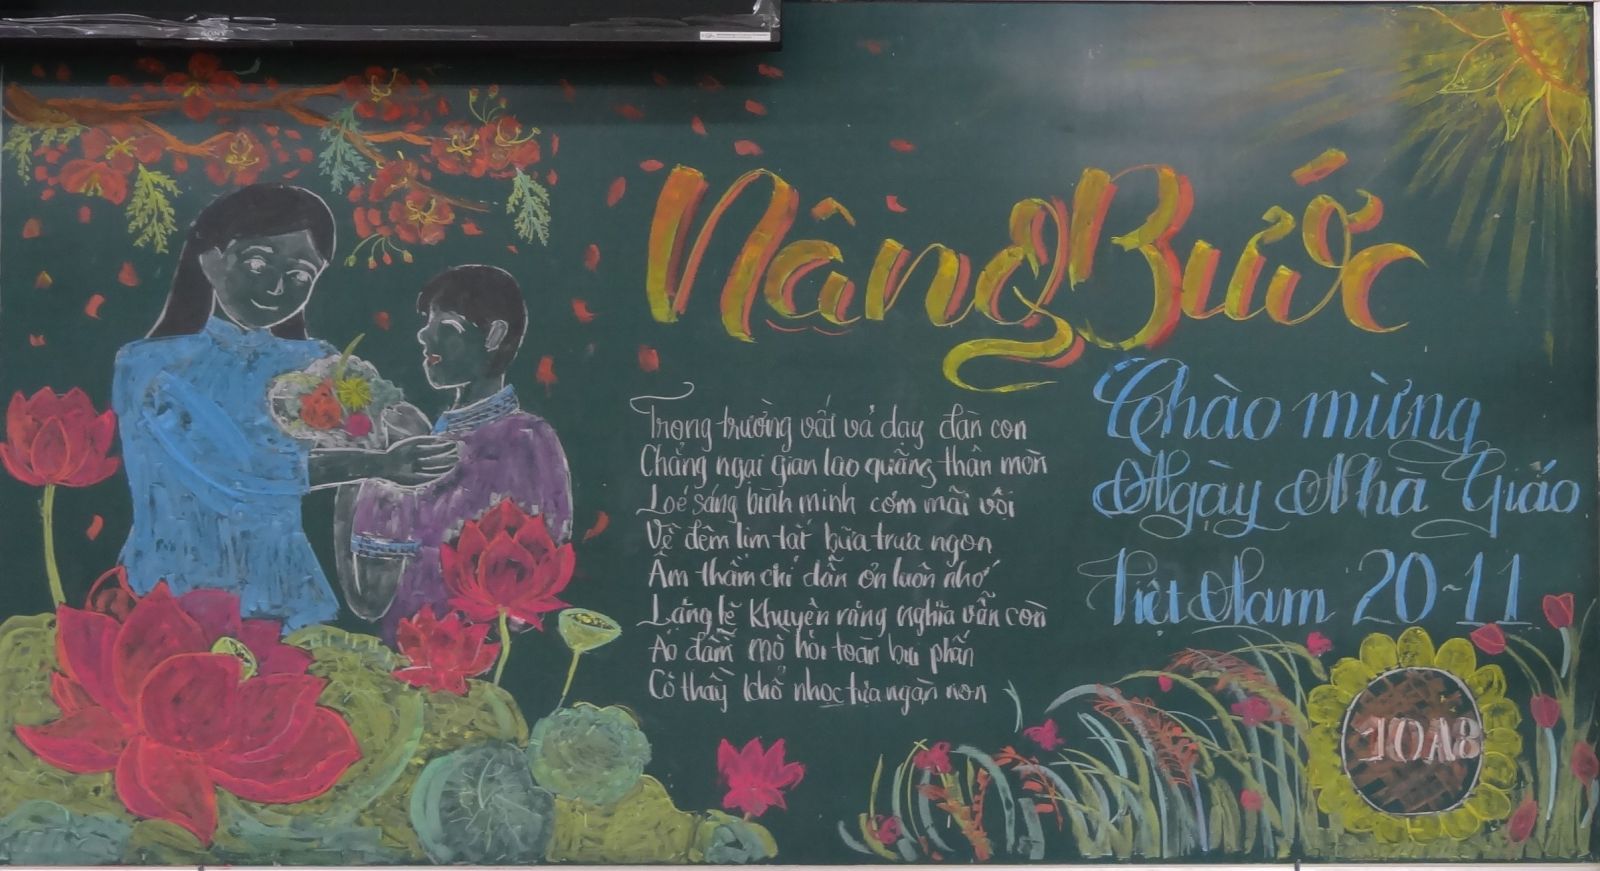 SONY
Nâng Bước
Trọng trường vất vả dạy đàn con
Chẳng ngại gian lao quẵng thân mòn
Loé sáng bình minh cơm mãi vội
Về đêm lim tắt bữa trưa ngon
Âm thầm chỉ dẫn ơn luôn nhớ
Lặng lẽ khuyên răng nghĩa vẫn còn
Áo đẫm mồ hôi toàn bụi phấn
Cô thầy khổ nhọc tựa ngàn non
Chào mừng
Ngày Nhà Giáo
Việt Nam 20-11
10A8